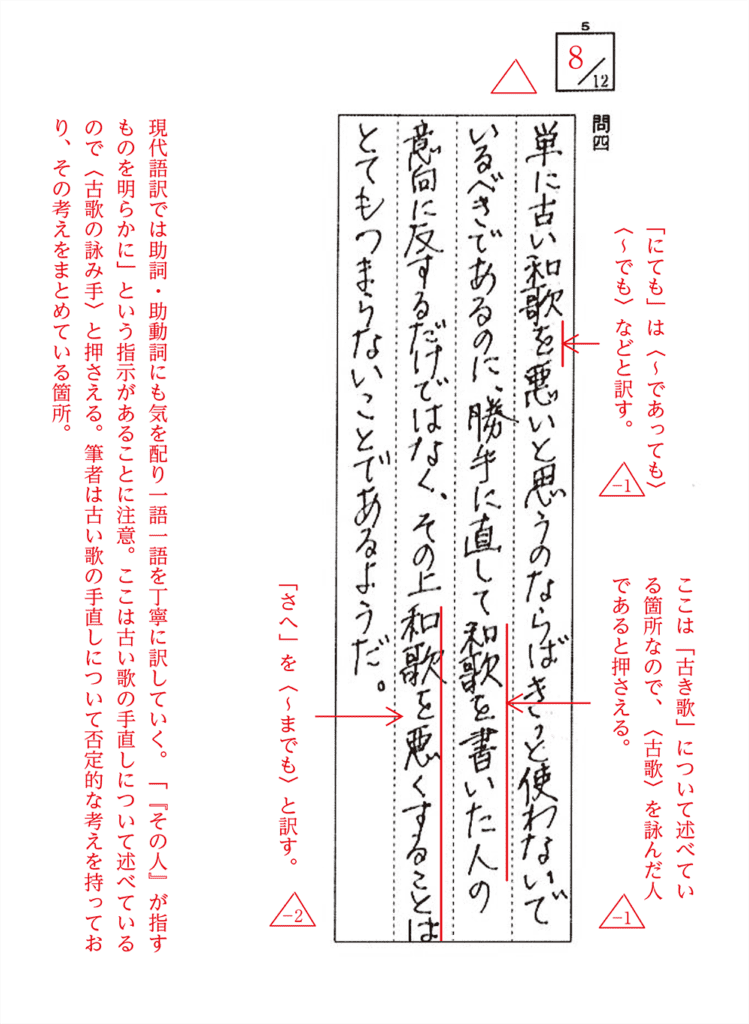 5
8/12
問四
単に古い和歌を悪いと思うのならばきっと使わないで
いるべきであるのに、勝手に直して和歌を書いた人の
意向に反するだけではなく、その上和歌を悪くすることは
とてもつまらないことであるようだ。
「にても」は〈～であっても〉
〈～でも〉などと訳す。
-1
ここは「古き歌」について述べてい
る箇所なので、〈古歌〉を詠んだ人
であると押さえる。
-1
「さへ」を〈～までも〉と訳す。
-2
現代語訳では助詞・助動詞にも気を配り一語一語を丁寧に訳していく。「『その人』が指す
ものを明らかに」という指示があることに注意。ここは古い歌の手直しについて述べている
ので〈古歌の詠み手〉と押さえる。筆者は古い歌の手直しについて否定的な考えを持ってお
り、その考えをまとめている箇所。